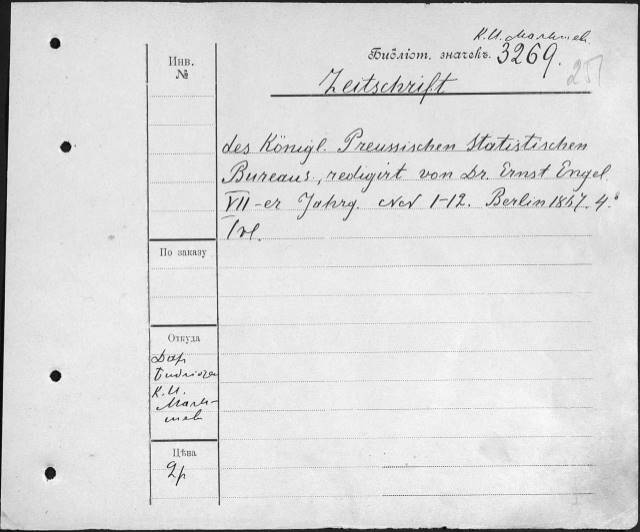 К.И. Малышев.
Библіот. значекъ 3269.
25
Zeitschrift
Инв.
№
des Königl. Preussischen Statistischen
Bureaus, redigirt von Dr. Ernst Engel
VII-er Jahrg. No 1-12. Berlin 1867. 4.°
1 vl.
По заказу
Откуда
Дар
библіотеки
К.И.
Малы-
шев
Цѣна
2р